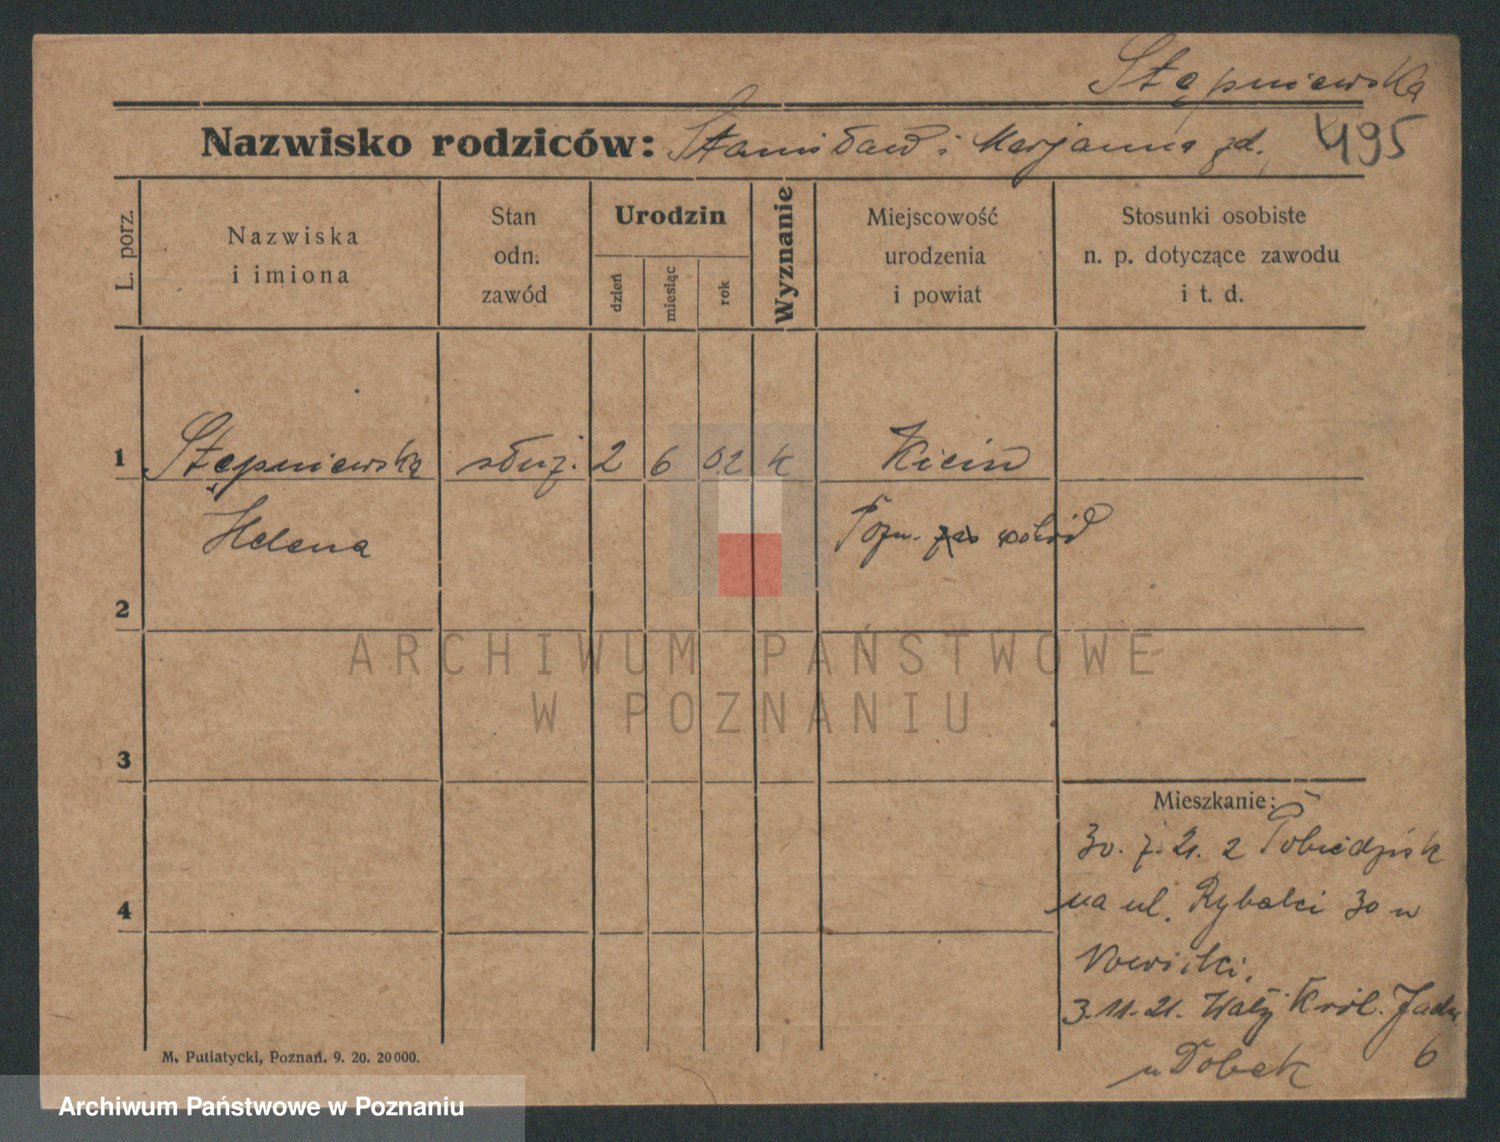 Stępniewska
Nazwisko rodziców: Stanisław i Marjanna zd. 495
L. porz.
Nazwiska
i imiona
Stan
odn.
zawód
Urodzin
dzień
miesiąc
rok
Wyznanie
Miejscowość
urodzenia
i powiat
Stosunki osobiste
n. p. dotyczące zawodu
i t. d.
1 Stępniewska służ. 2 6 02 k Kicin
Helena Pozn. wschód
2
3
Mieszkanie:
30. 7. 21. z Pobiedzisk
4
na ul. Rybaki 30 u
Nowicki.
3.11.21. Wały Król. Jadw
u Dobek 6
M. Putiatycki, Poznań. 9. 20. 20000.
ARCHIWUM PAŃSTWOWE
W POZNANIU
Archiwum Państwowe w Poznaniu